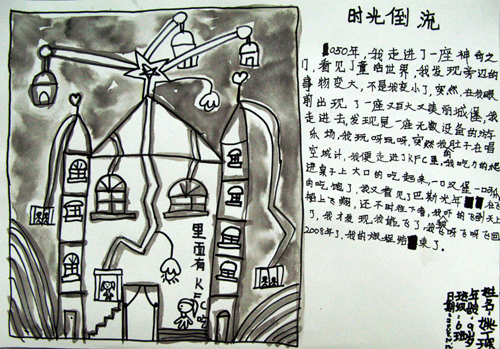 时光倒流
050年,我走进了一座神奇之
门,看见了童话世界,我发现旁边的
事物变大,不是我变小了,突然,在我眼
前出现了一座又巨大又美丽城堡,我
走进去,发现是一座无数设备的游
乐场,我玩呀玩呀,突然我肚子在唱
空城计,我便走进了KFC里,我吃力的爬
进桌上大口的吃起来,一口又一口
肉吃饱了,我又看见了巴斯光年 在飞
船上飞翔,还不时往下看,
了,我才发现我能飞了,我飞呀飞呀飞回
2008年了,我的 结 束了。
里面有KFC吃
姓名:
年龄:9岁
班级:6班
日期: